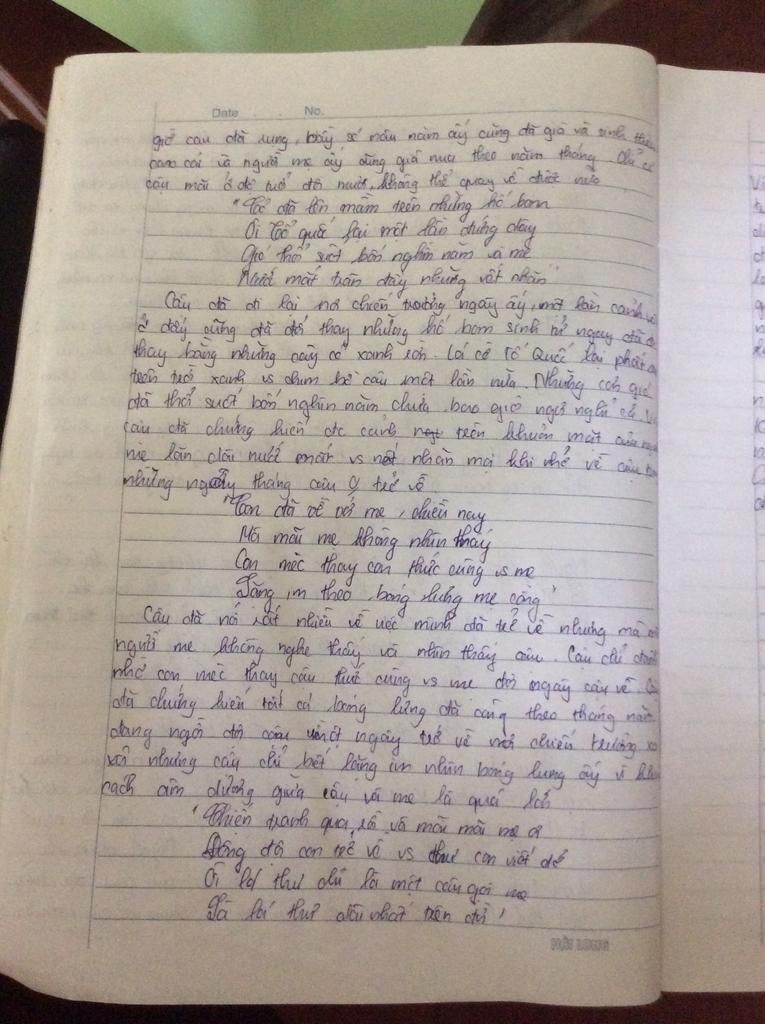 Date No.
giờ cau đã rụng, bây số mẫu năm ấy cũng đã già và sinh
con cái và người mẹ ấy cũng già nua theo năm tháng. Chỉ có
cậu mãi ở độ tuổi đôi mươi, không thể quay về được nữa
"Cỏ đã lên mầm trên những hố bom
Ôi Tổ quốc lại một lần đứng dậy
Gió thổi suốt bốn nghìn năm và mẹ
Nước mắt tràn đầy những vết nhăn"
Cậu đã đi lại nơi chiến trường ngày ấy, một lần cảnh
ở đây cũng đã đổi thay những hố bom sinh tử ngày
thay bằng những cây cỏ xanh rờn. Lá cờ Tổ Quốc lại
trên trời xanh vs chùm bờ cậu một lần nữa. Những cơn gió
đã thổi suốt bốn nghìn năm chưa bao giờ ngơi nghỉ cả.
cậu đã chứng kiến đc cảnh trên khuôn mặt của
mẹ lăn dài nước mắt vs nết nhăn mọi khi nhớ về cậu
những ngày tháng cậu trở về
"Con đã về với mẹ, chiều nay
Mà mẫu mẹ không nhìn thấy
Con mèo thay con thức cùng vs mẹ
Lặng im theo bóng lưng mẹ còng"
Cậu đã nói rất nhiều về việc mình đã trở về nhưng mà
người mẹ không nghe thấy và nhìn thấy cậu. Cậu chỉ
nhờ con mèo thay cậu thức cùng vs mẹ đợi ngày cậu về.
đã chứng kiến tất cả bóng lưng đã còng theo tháng năm
đang ngồi đợi cậu một ngày trở về nơi chiến trường
xôi nhưng cậu chỉ biết lặng im nhìn bóng lưng ấy vì
cách âm dương giữa cậu và mẹ là quá lớn
"Chiến tranh qua rồi và mãi mãi mẹ ơi
Đồng đội con trở về vs thư con viết dở
Ôi lá thư chỉ là một câu gọi mẹ
Là lá thư dài nhất trên đời"
HẢI LONG